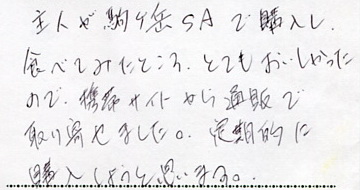 主人が駒ヶ岳SAで購入し、
食べてみたところ、とてもおいしかった
ので、携帯サイトから通販で
取り寄せました。定期的に
購入しようと思います。